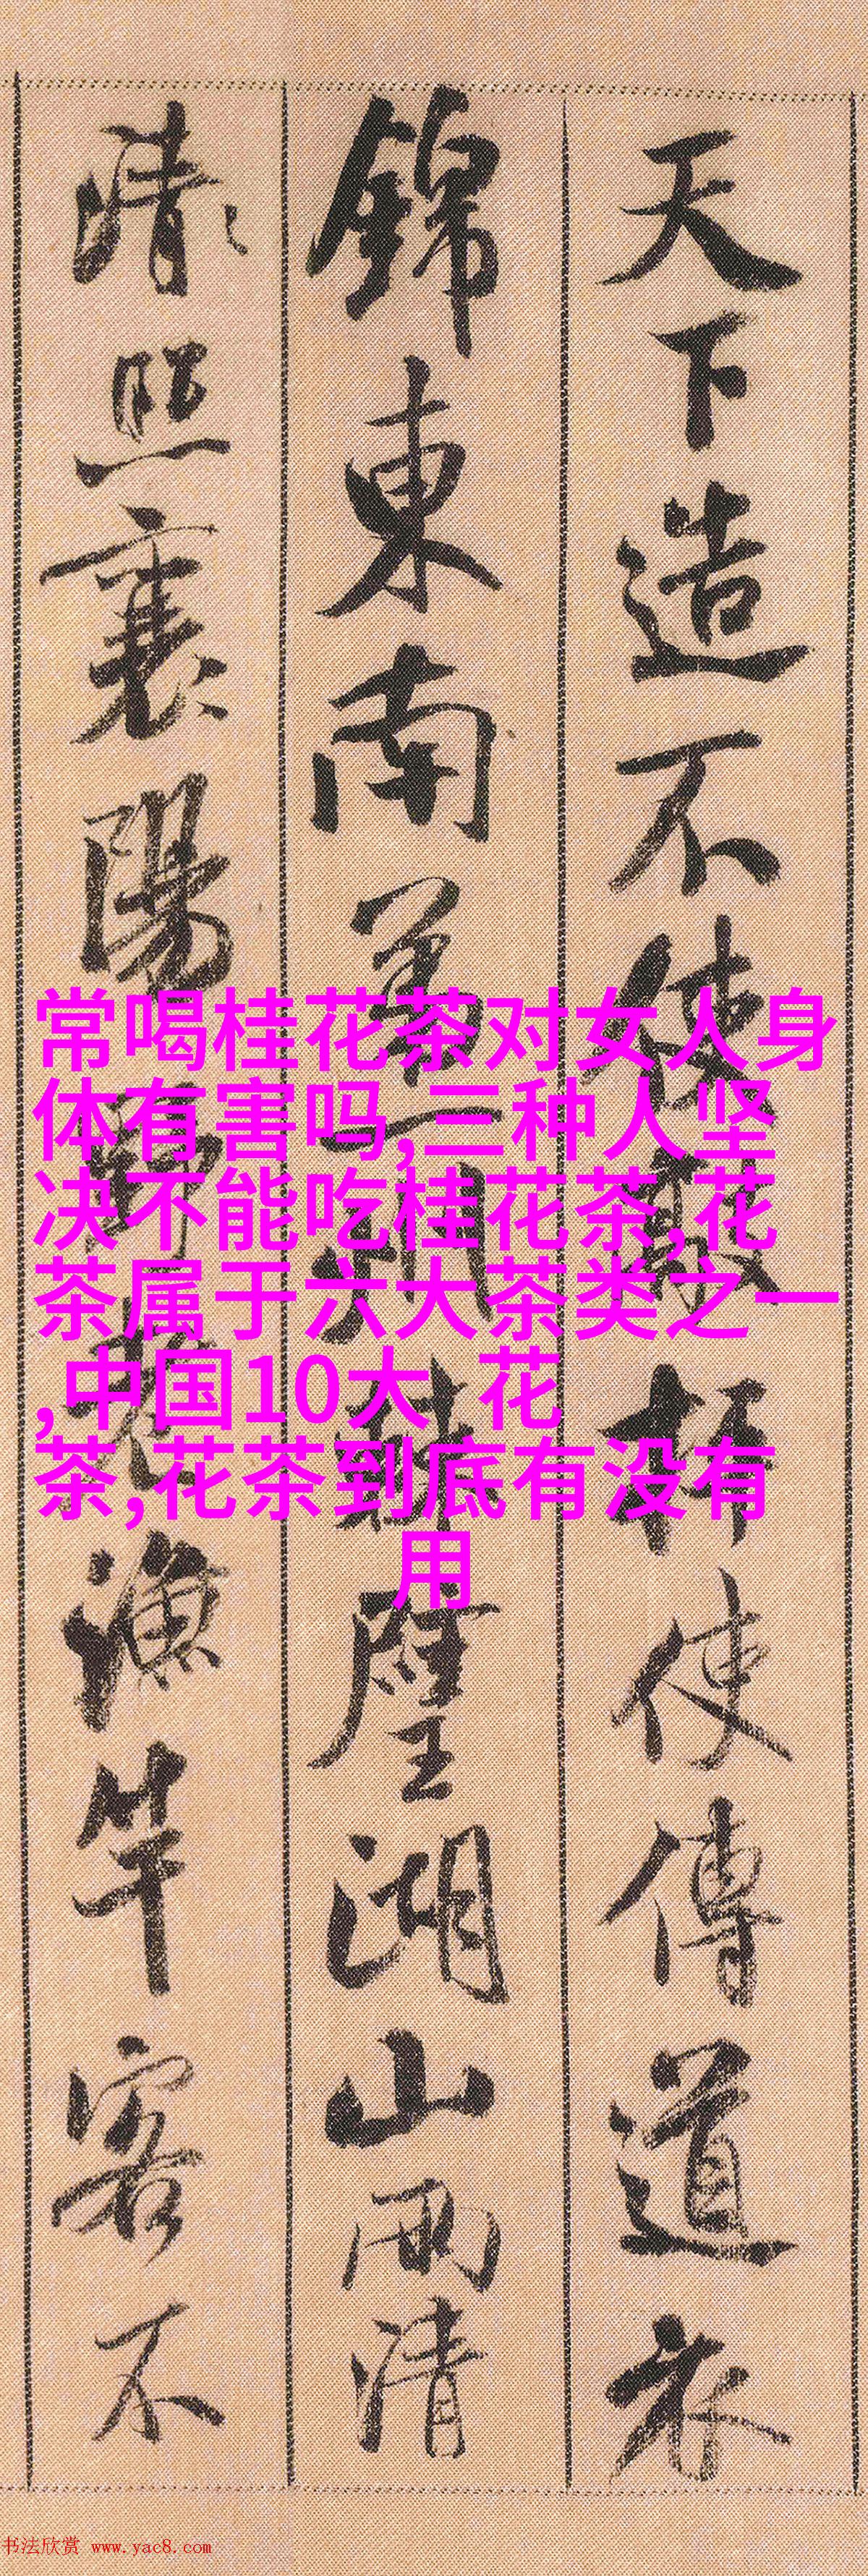 天下造不使敲杯使傳道衣
錦東南第一州棘璧湖山兩清
清照襄陽野老漁竿客不
常喝桂花茶对女人身
体有害吗,三种人坚
决不能吃桂花茶,花
茶属于六大茶类之一
,中国10大 花
茶,花茶到底有没有
用
书法欣赏 www.yac8.com